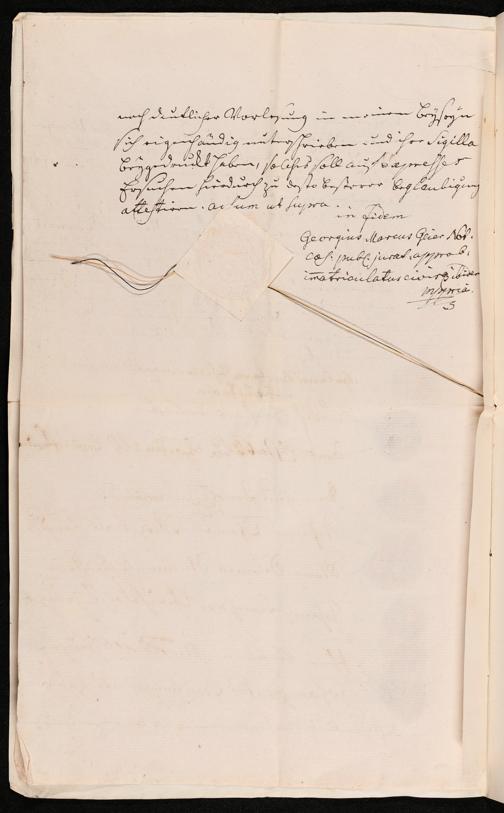 nach deutlicher Vorlesung in meinem Beyseyn
sich eigenhändig unterschrieben und ihre Sigilla
beygedruckt haben, solches soll auf expresses
Ersuchen hiedurch zu desto besserer beglaubigung
attestiren. actum ut supra.
in Fidem
Georgius Marcus Geier Not.
Cæs. publ. jurat. approb.
immatriculatus civis
mppria.